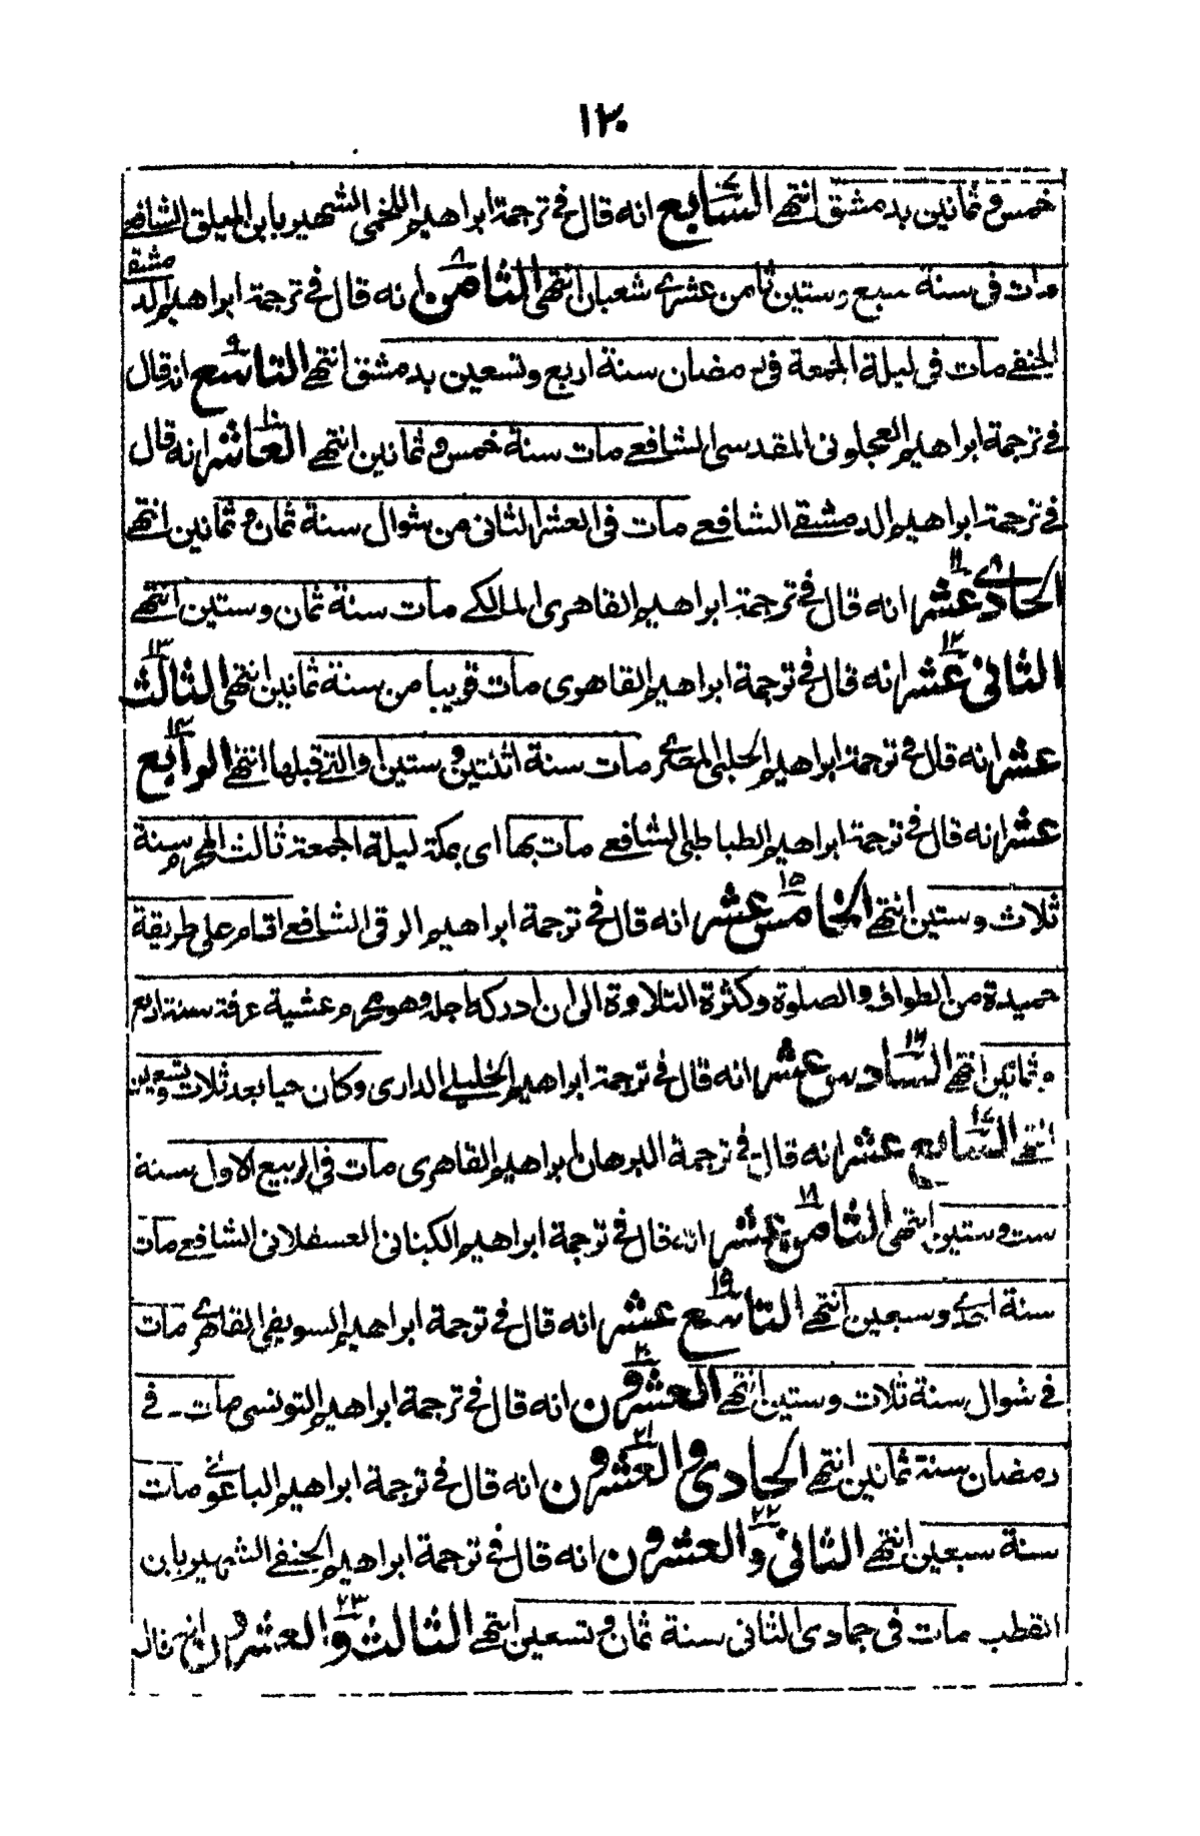 ١٣٠
خمس و ثمانين بدمشق انتهے السابع انه قال فے ترجمة ابراهيم اللخمی الشهير بابن المعلق الشافعے
مات فی سنة سبع وستين ثامن عشرے شعبان انتهی الثامن انه قال فے ترجمة ابراهيم الدمشقے
الحنفے مات فی ليلة الجمعة فی رمضان سنة اربع وتسعين بدمشق انتهے التاسع انه قال
فے ترجمة ابراهيم العجلونی المقدسی الشافعے مات سنة خمس و ثمانين انتهے العاشر انه قال
فے ترجمة ابراهيم الدمشقے الشافعے مات فی العشر الثانی من شوال سنة ثمان و ثمانين انتهے
الحادے عشر انه قال فے ترجمة ابراهيم القاهری المالكے مات سنة ثمان وستين انتهے
الثانی عشر انه قال فے ترجمة ابراهيم القاهری مات قريبا من سنة ثمانين انتهی الثالث
عشر انه قال فے ترجمة ابراهيم الحلبی مات سنة اثنتين و ستين او التے قبلها انتهے الرابع
عشر انه قال فے ترجمة ابراهيم الطباطبی الشافعے مات بها ای بمكة ليلة الجمعة ثالث المحرم سنة
ثلاث وستين انتهے الخامس عشر انه قال فے ترجمة ابراهيم الرقی الشافعے اقام علی طريقة
حميدة من الطواف والصلوة وكثرة التلاوة الی ان ادركه اجله وهو محرم عشية عرفة سنة اربع
و ثمانين انتهے السادس عشر انه قال فے ترجمة ابراهيم الخليلے الداری وكان حيا بعد ثلاث وتسعين
انتهے السابع عشر انه قال فے ترجمة البرهان ابراهيم القاهری مات فی الربيع الاول سنة
ست وستين انتهی الثامن عشر انه قال فے ترجمة ابراهيم الكنانی العسقلانی الشافعے مات
سنة احدے وسبعين انتهے التاسع عشر انه قال فے ترجمة ابراهيم السويفی القاهرے مات
فے شوال سنة ثلاث وستين انتهے العشرون انه قال فے ترجمة ابراهيم التونسی مات فے
رمضان سنة ثمانين انتهے الحادی والعشرون انه قال فے ترجمة ابراهيم الباعونے مات
سنة سبعين انتهے الثانی والعشرون انه قال فے ترجمة ابراهيم الحنفے الشهير بابن
القطب مات فی جمادی الثانی سنة ثمان و تسعين انتهے الثالث والعشرون انه قال